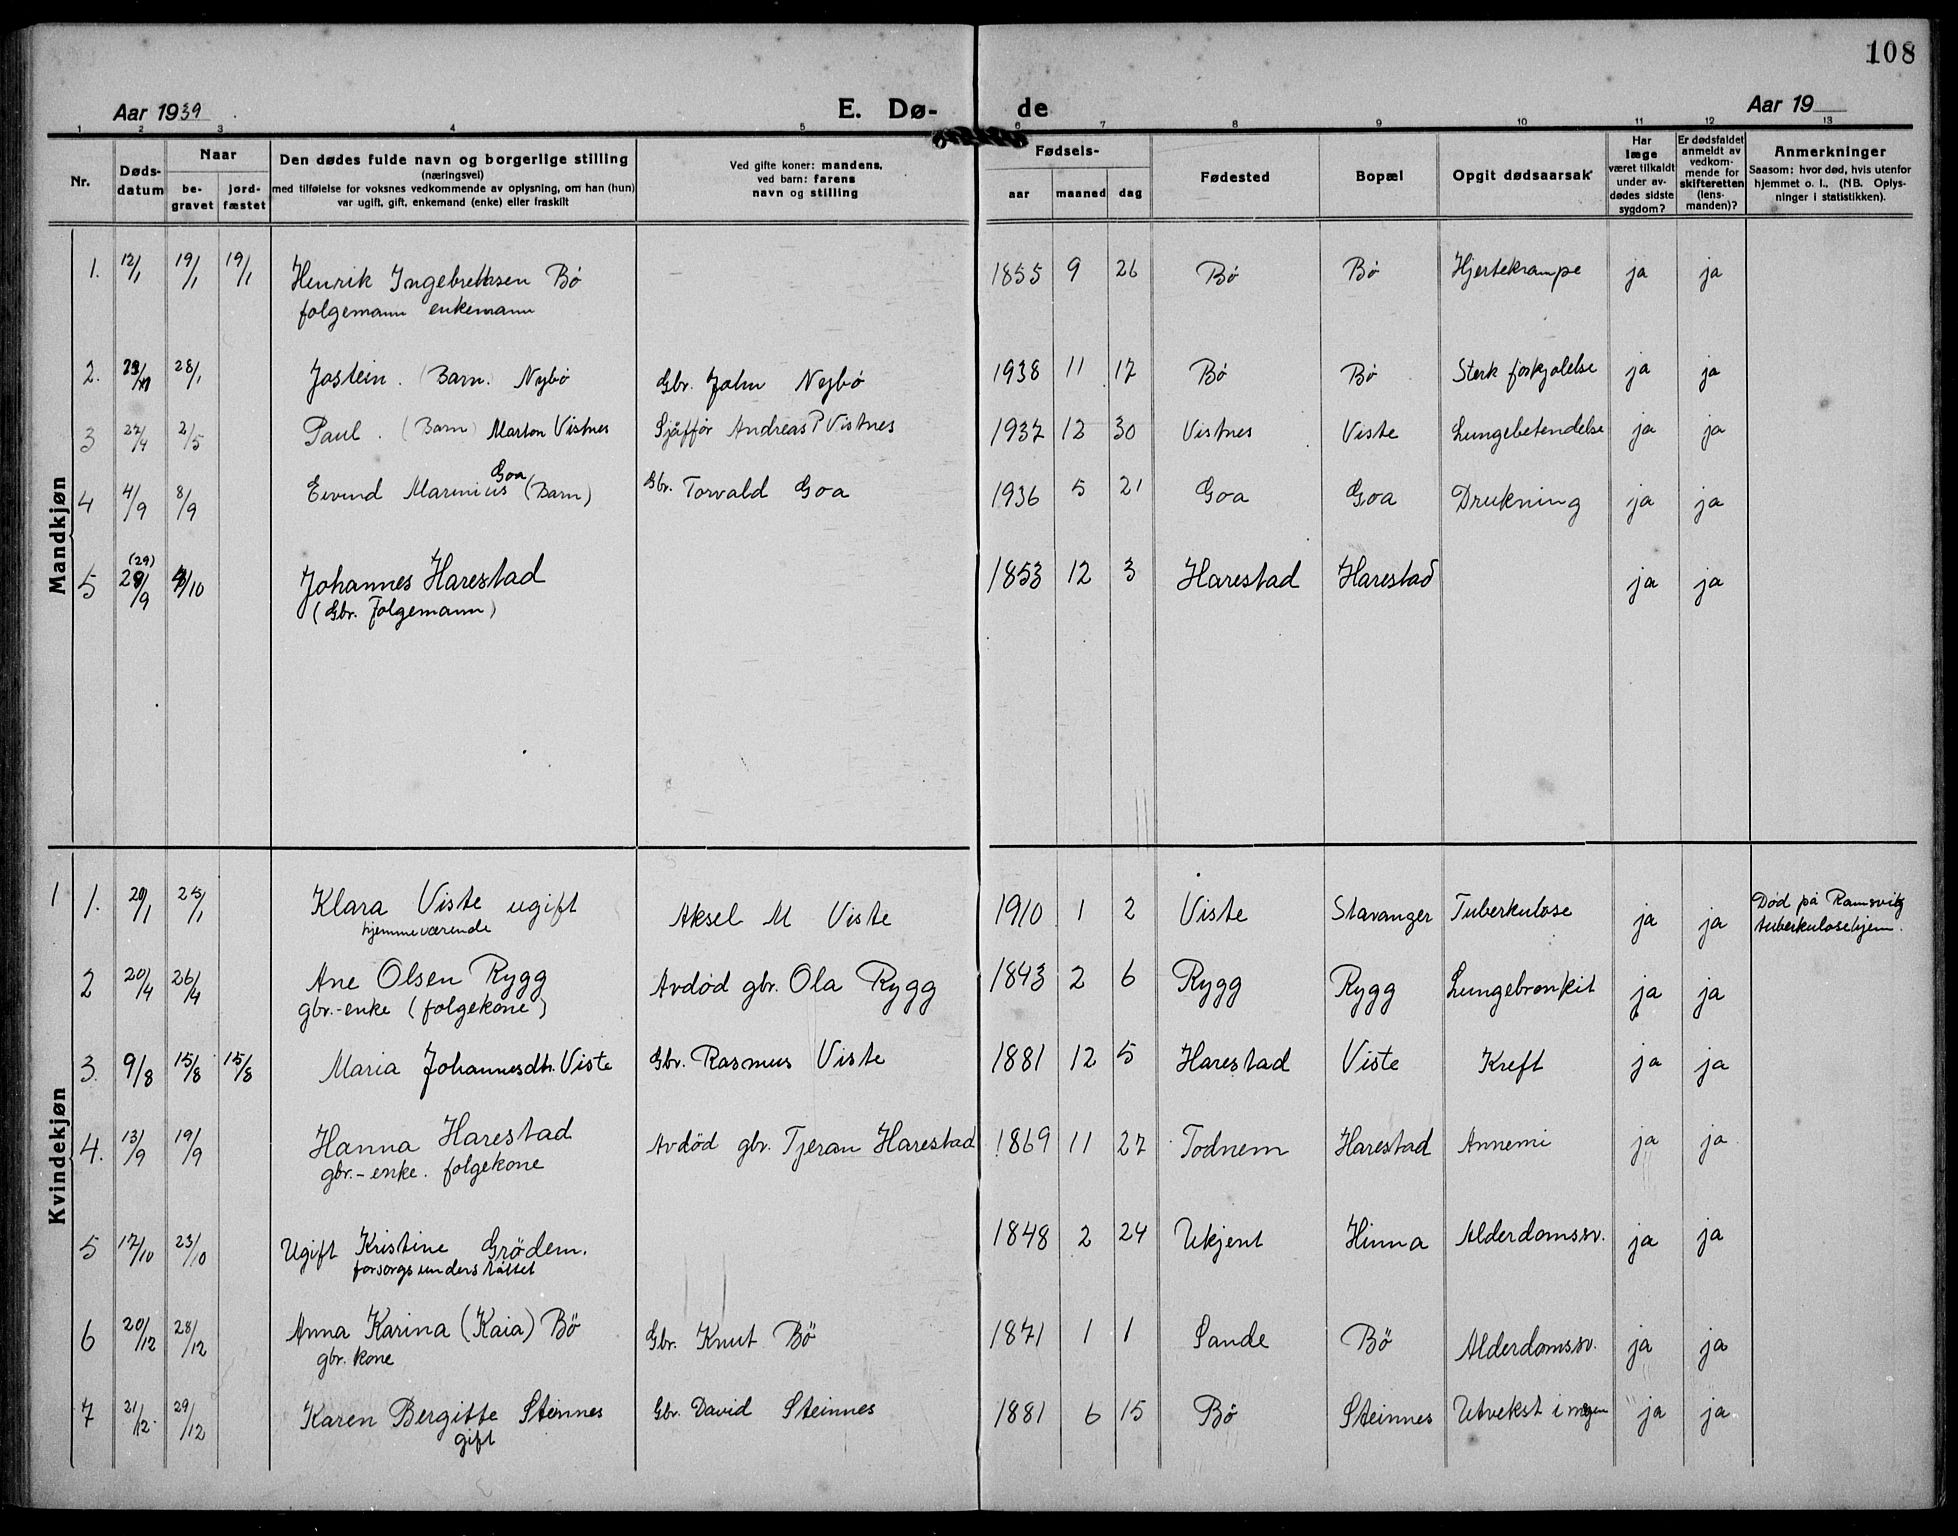 108
Aar 1939 E. Dø- de Aar 19
1 2 3 4 5 6 7 8 9 10 11 12 13
Nr.
Døds-
datum
Naar
be-
gravet
jord-
fæstet
Den dødes fulde navn og borgerlige stilling
(næringsvei)
med tilføielse for voksnes vedkommende av oplysning, om han (hun)
var ugift, gift, enkemand (enke) eller fraskilt
Ved gifte koner: mandens,
ved barn: farens
navn og stilling
Fødsels-
aar maaned dag
Fødested
Bopæl
Opgit dødsaarsak
Har
læge
været tilkaldt
under av-
dødes sidste
sygdom?
Er dødsfaldet
anmeldt av
vedkom-
mende for
skifteretten
(lens-
manden)?
Anmerkninger
Saasom: hvor død, hvis utenfor
hjemmet o. l., (NB. Oplys-
ninger i statistikken).
Mandkjøn
1. 12/1 19/1 19/1 Henrik Ingebretksen Bø 1855 9 26 Bø Bø Hjertekrampe ja ja
folgemann enkemann
2. 28/1 Jostein. (Barn. Nybø Gbr. John Nybø 1938 11 17 Bø Bø Sterk forkjolelse ja ja
3 27/4 2/5 Paul. (Barn) Marton Vistnes Sjåffør Andreas P Vistnes 1937 12 30 Vistnes Viste Lungebetendelse ja ja
4 4/9 8/9 Eivind Marinius Goa (Barn) Gbr. Torvald Goa 1936 5 21 Goa Goa Drukning ja ja
(29)
5 29/9 4/10 Johannes Harestad 1853 12 3 Harestad Harestad ja ja
(Gbr. Folgemann)
Kvindekjøn
1 1. 20/1 25/1 Klara Viste ugift Aksel M Viste 1910 1 2 Viste Stavanger Tuberkulose ja ja Død på Ramsvig
hjemmeværende tuberkulosehjem.
2 20/4 26/4 Ane Olsen Rygg Avdød gbr. Ola Rygg 1843 2 6 Rygg Rygg Lungebronkit ja ja
gbr.-enke (folgekone)
3. 9/8 15/8 15/8 Maria Johannesdtr. Viste Gbr. Rasmus Viste 1881 12 5 Harestad Viste Kreft ja ja
4. 13/9 19/9 Hanna Harestad Avdød gbr. Tjeran Harestad 1869 11 27 Todnem Harestad Annemi ja ja
gbr.-enke. folgekone
5 17/10 23/10 Ugift Kristine Grödem. 1848 2 24 Ukjent Hinna Alderdomssv. ja ja
forsorgsunderstöttet
6 20/12 28/12 Anna Karina (Kaia) Bö Gbr. Knut Bö 1871 1 1 Sande Bö Alderdomssv. ja ja
gbr. kone
7 21/12. 29/12 Karen Bergitte Steinnes Gbr. David Steinnes 1881 6 15 Bø Steinnes Utvekst i magen ja ja
gift